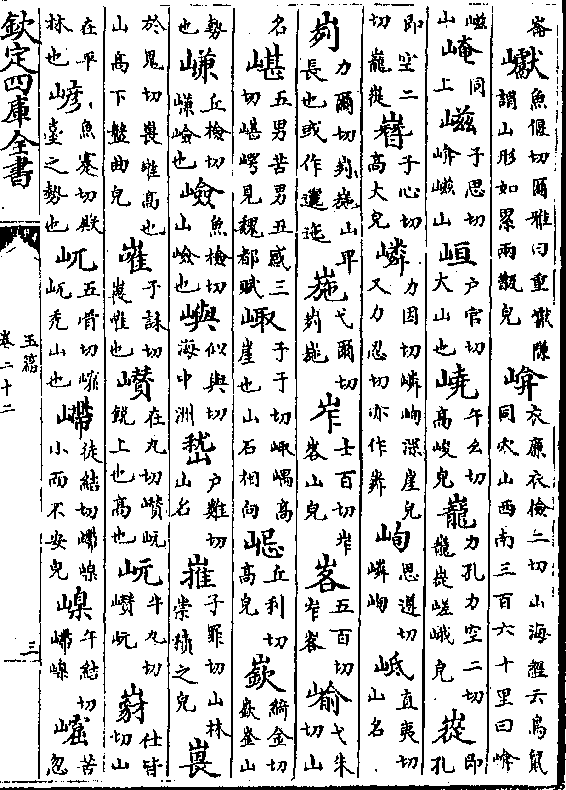 嵞巘魚偃切爾雅曰重巘陳謂山形如累兩甑皃崦衣廉衣檢二切山海經云鳥鼠同穴山西南三百六十里曰崦
嵫山崦同上嵫子思切崦嵫山峘户官切大山也嶢午幺切高峻皃巃力孔力空二切巃嵸嵯峨皃嵸即孔
即空二切巃嵸嶜子心切高大皃嶙力因切嶙峋深崖皃又力忍切亦作粦峋思遵切嶙峋岻直夷切山名
峛力爾切峛崺山卑長也或作邐迤崺弋爾切峛崺岝士百切岝峉山皃峉五百切岝峉崳弋朱切山
名嵁五男苦男丑惑三切嵁崿見魏都賦㟦子于切㟦嵎高崖也山石相向㞆丘利切高皃嶔綺金切嶔崟山
勢也嵰丘檢切嵰嶮也嶮魚檢切山嶮也嶼似與切海中洲嵆户雞切山名嶊子罪切山林崇積之皃嵔
於鬼切嵔㠑高也山高下盤曲皃嶉子誄切嵔嶉也巑在丸切巑岏鋭上也高也岏牛九切巑岏㟬仕皆切山
林在平也嵃魚蹇切㟬臺之勢也屼五骨切㟮屼禿山也嵽徒結切嵽嵲小而不安皃嵲午結切嵽嵲㠢苦忽
欽定四庫全書
玉篇
卷二十二
三